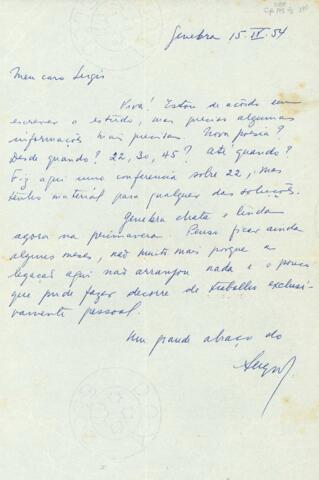 Genebra 15. IV. 54
Meu caro Sergio
Viva! Estou de acôrdo em
escrever o estudo, mas preciso algumas
informações mais precisas. Nova poesia?
Desde quando? 22, 30, 45? Até quando?
Fiz aqui uma conferencia sobre 22, mas
tenho material para qualquer das soluções.
Genebra chata e linda
agora na primavera. Penso ficar ainda
alguns meses, não muito mais porque a
legação aqui não arranjou nada e o pouco
que pude fazer decorre de trabalho exclusi-
vamente pessoal.
Um grande abraço do